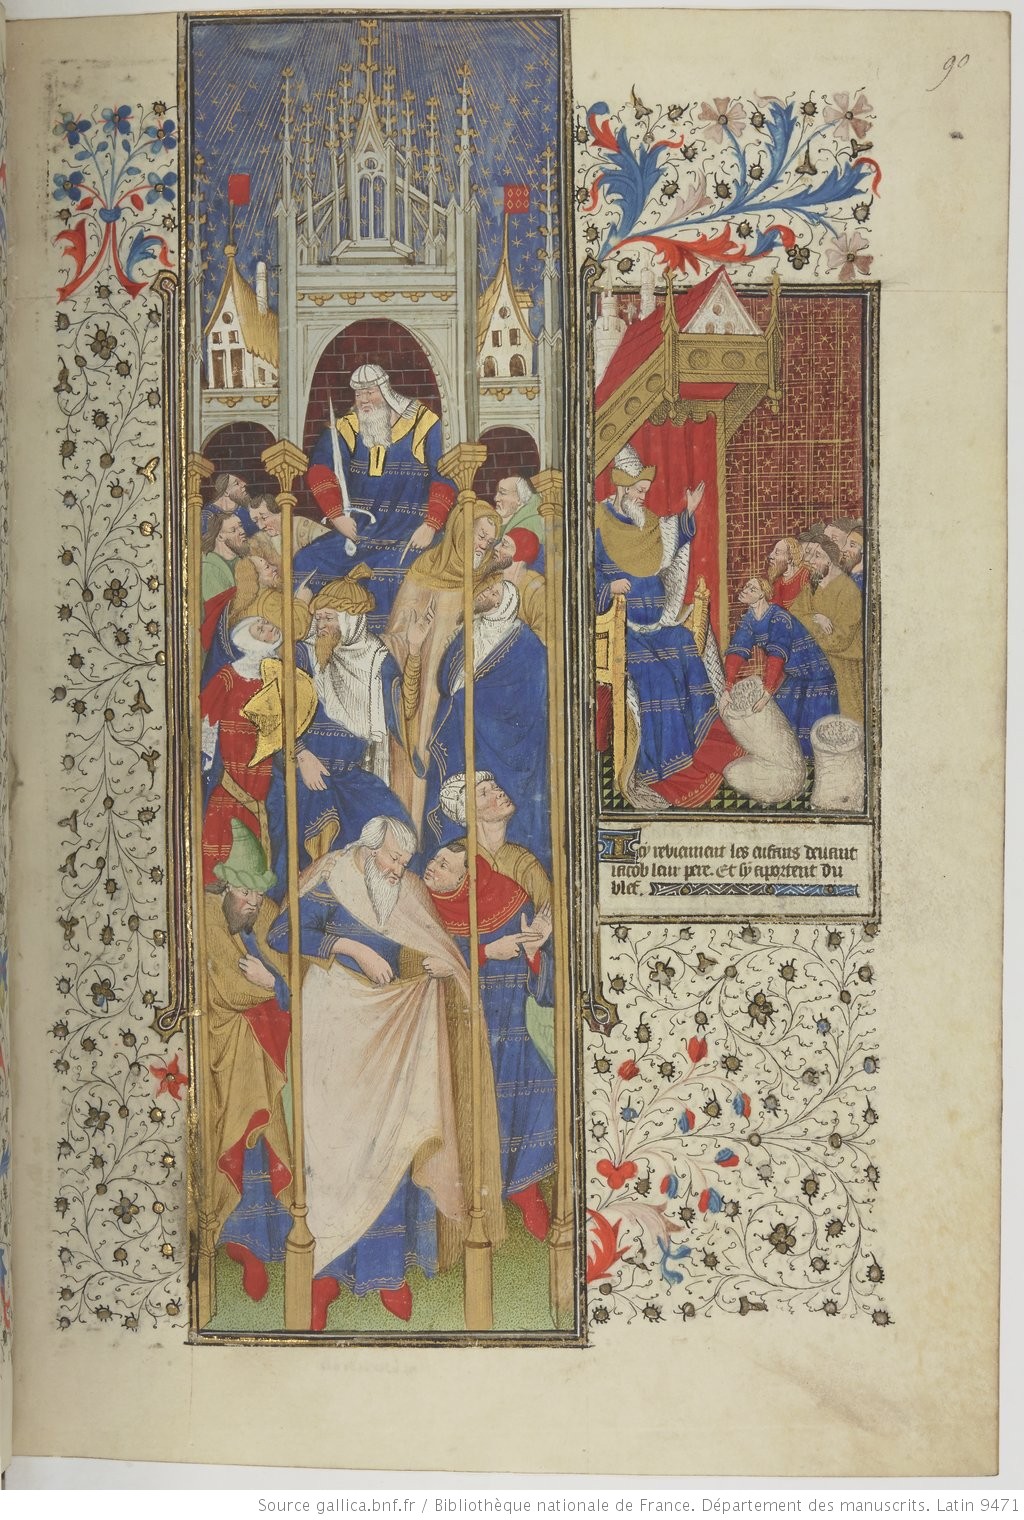 90
Icy reviennent les enfans devant
iacob leur pere. Et sy aportent du
blef.
Source gallica.bnf.fr / Bibliothèque nationale de France. Département des manuscrits. Latin 9471